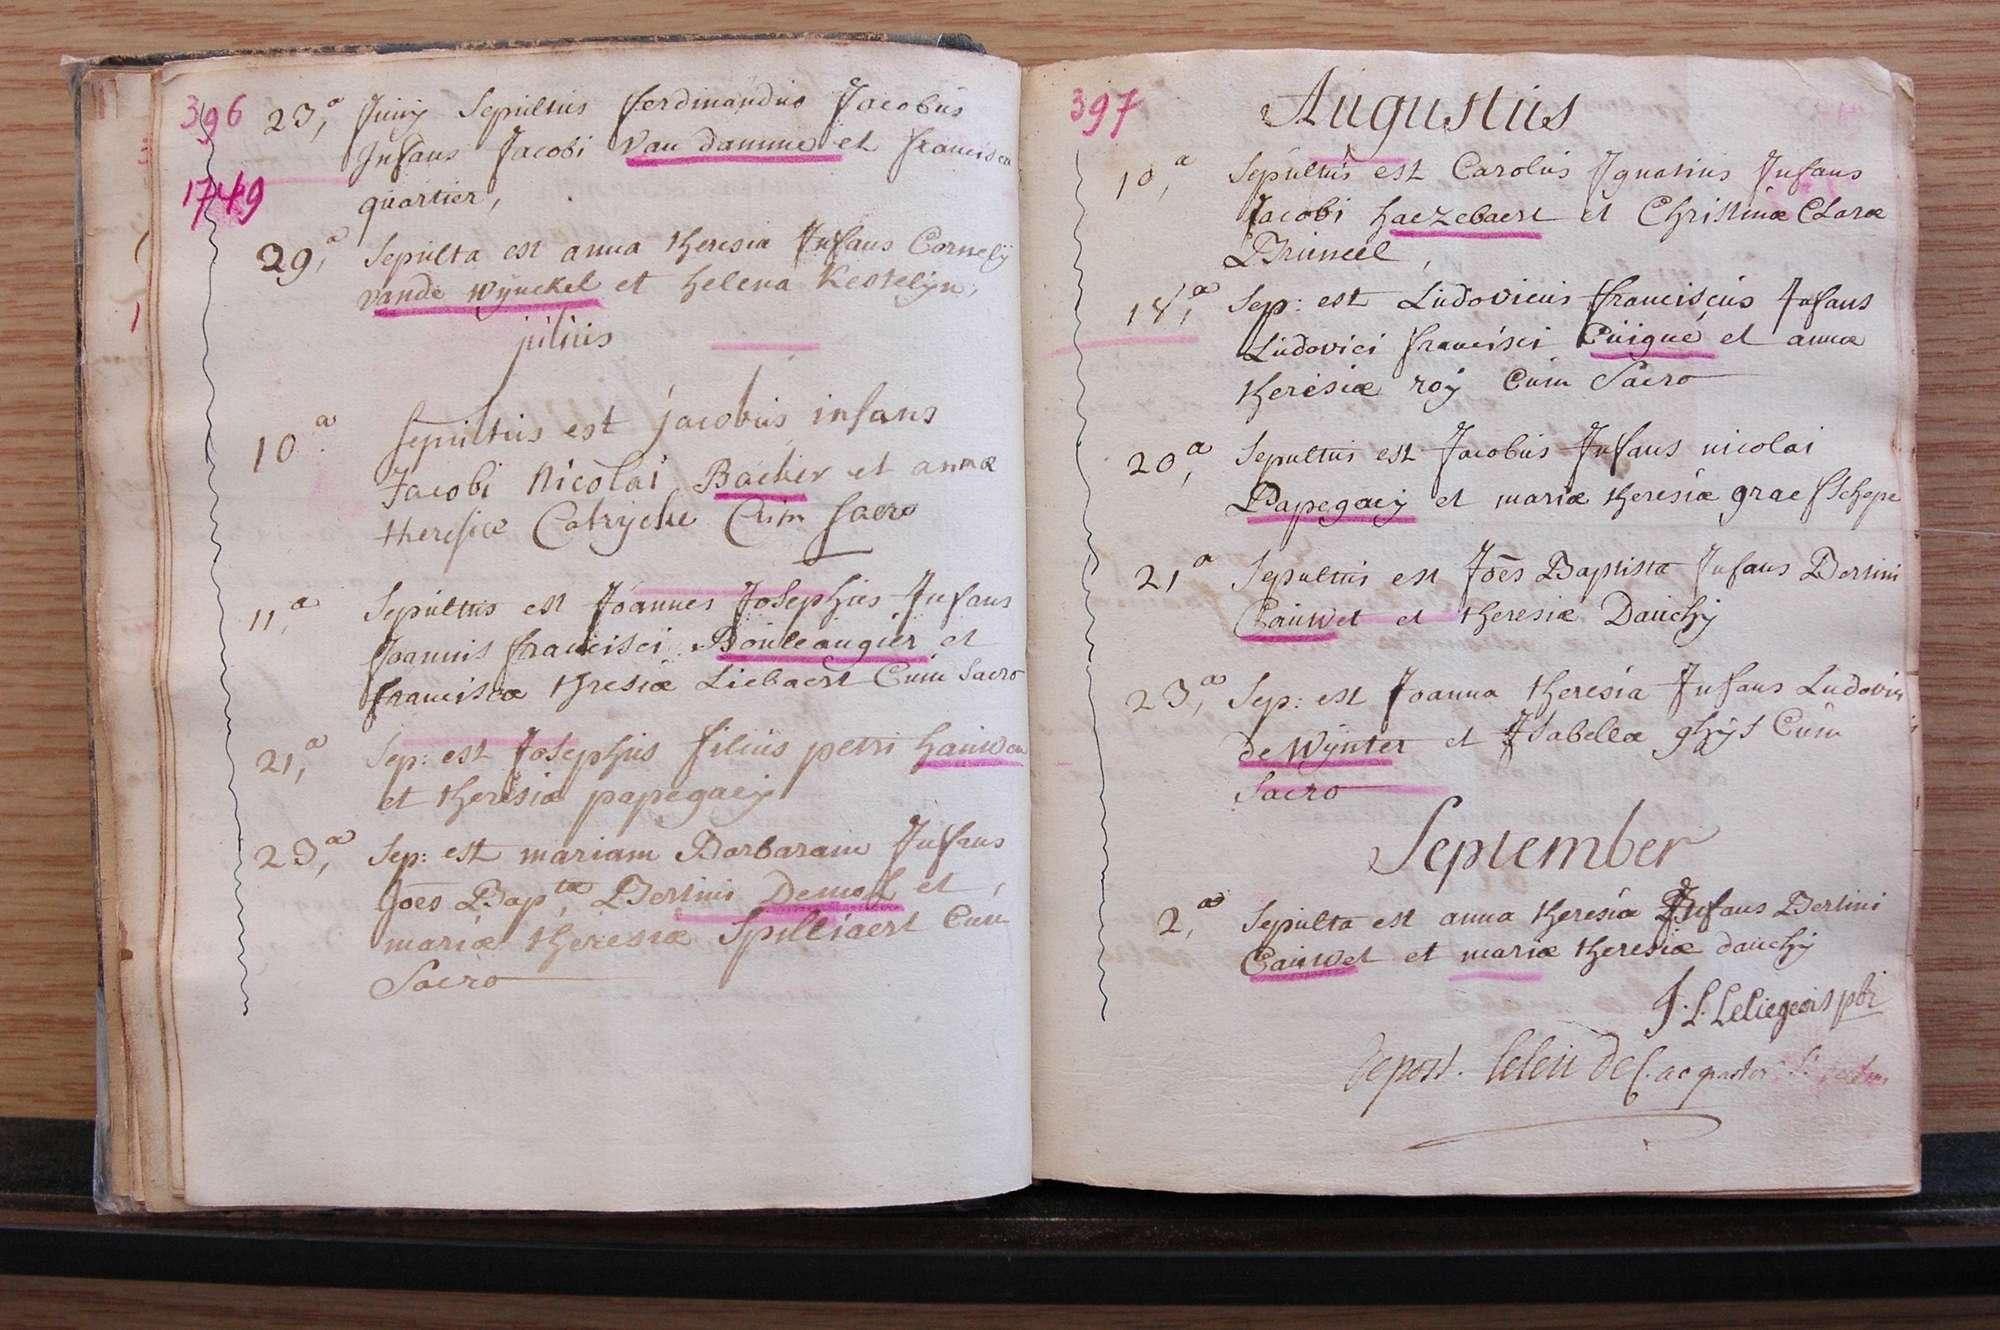 396
1749
23,a Junij Sepultus ferdinandus Jacobus
Infans Jacobi Van damme et francisca
quartier,
29,a Sepulta est anna theresia Infans Cornelÿ
vande wÿnckel et helena Kestelÿn,
julius
10a. Sepultus est jacobus infans
Jacobi Nicolai Backer et annæ
theresiæ Catrycke Cum sacro
11,a Sepultus est Joannes Josephus Infans
Joannis francisci Bouleaugier et
franciscæ thresiæ Liebaert Cum Sacro
21,a Sep: est Josephus filius petri
et theresiæ papegaeÿ
23,a Sep: est mariam Barbaram Infans
Joês Bap,tæ Bertini Demol et,
mariæ theresiæ Spilliaert Cum
Sacro
397
Augustus
10,a Sepultus est Carolus Ignatius Infans
Jacobi haezebaert et Christinæ Claræ
Bruneel,
18,a Sep: est Ludovicus franciscus Infans
Ludovici francisci Cuigné et annæ
theresiæ roÿ Cum Sacro
20,a Sepultus est Jacobus Infans nicolai
Papegaeÿ et mariæ theresiæ graefschepe
21a Sepultus est Joês Baptista Infans Bertini
Cauwet et theresiæ Dauchÿ
23,a Sep: est Joanna theresia Infans Ludovici
de Wÿnter et Isabellæ ghÿs Cum
Sacro
September
2,a Sepulta est anna theresiæ Infans Bertini
Cauwet et mariæ theresiæ dauchÿ
J. L. Leliegeois pbr
depost. Leleu